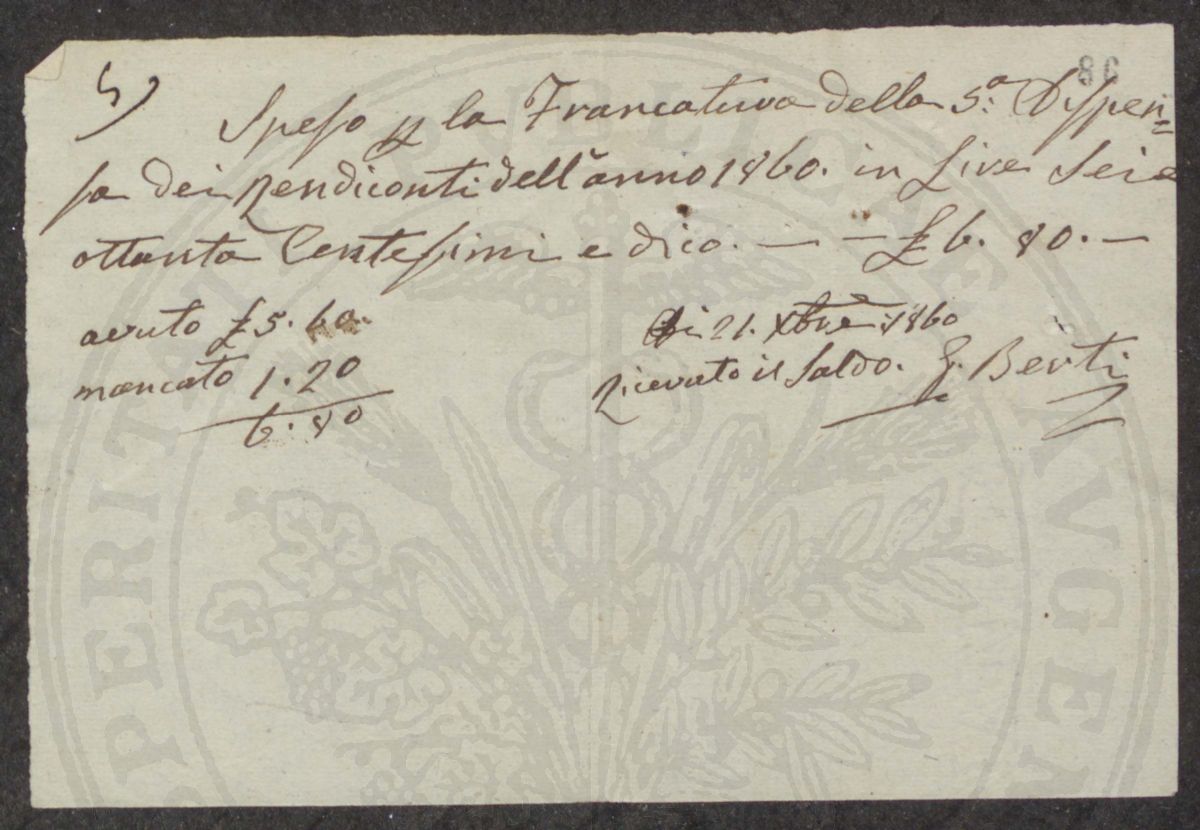 86
5)
Speso p la Francatura della 5.ª Disspen=
sa dei Rendiconti dell'anno 1860. in Lire Sei e
ottanta Centesimi e dico. — — £ 6. 80. —
avuto £ 5. 60.
mancato 1. 20
6. 80
Di 21. Xbre 1860
Ricevuto il Saldo. G. Berti
PVBLICAE
PERITAT
AVGEN